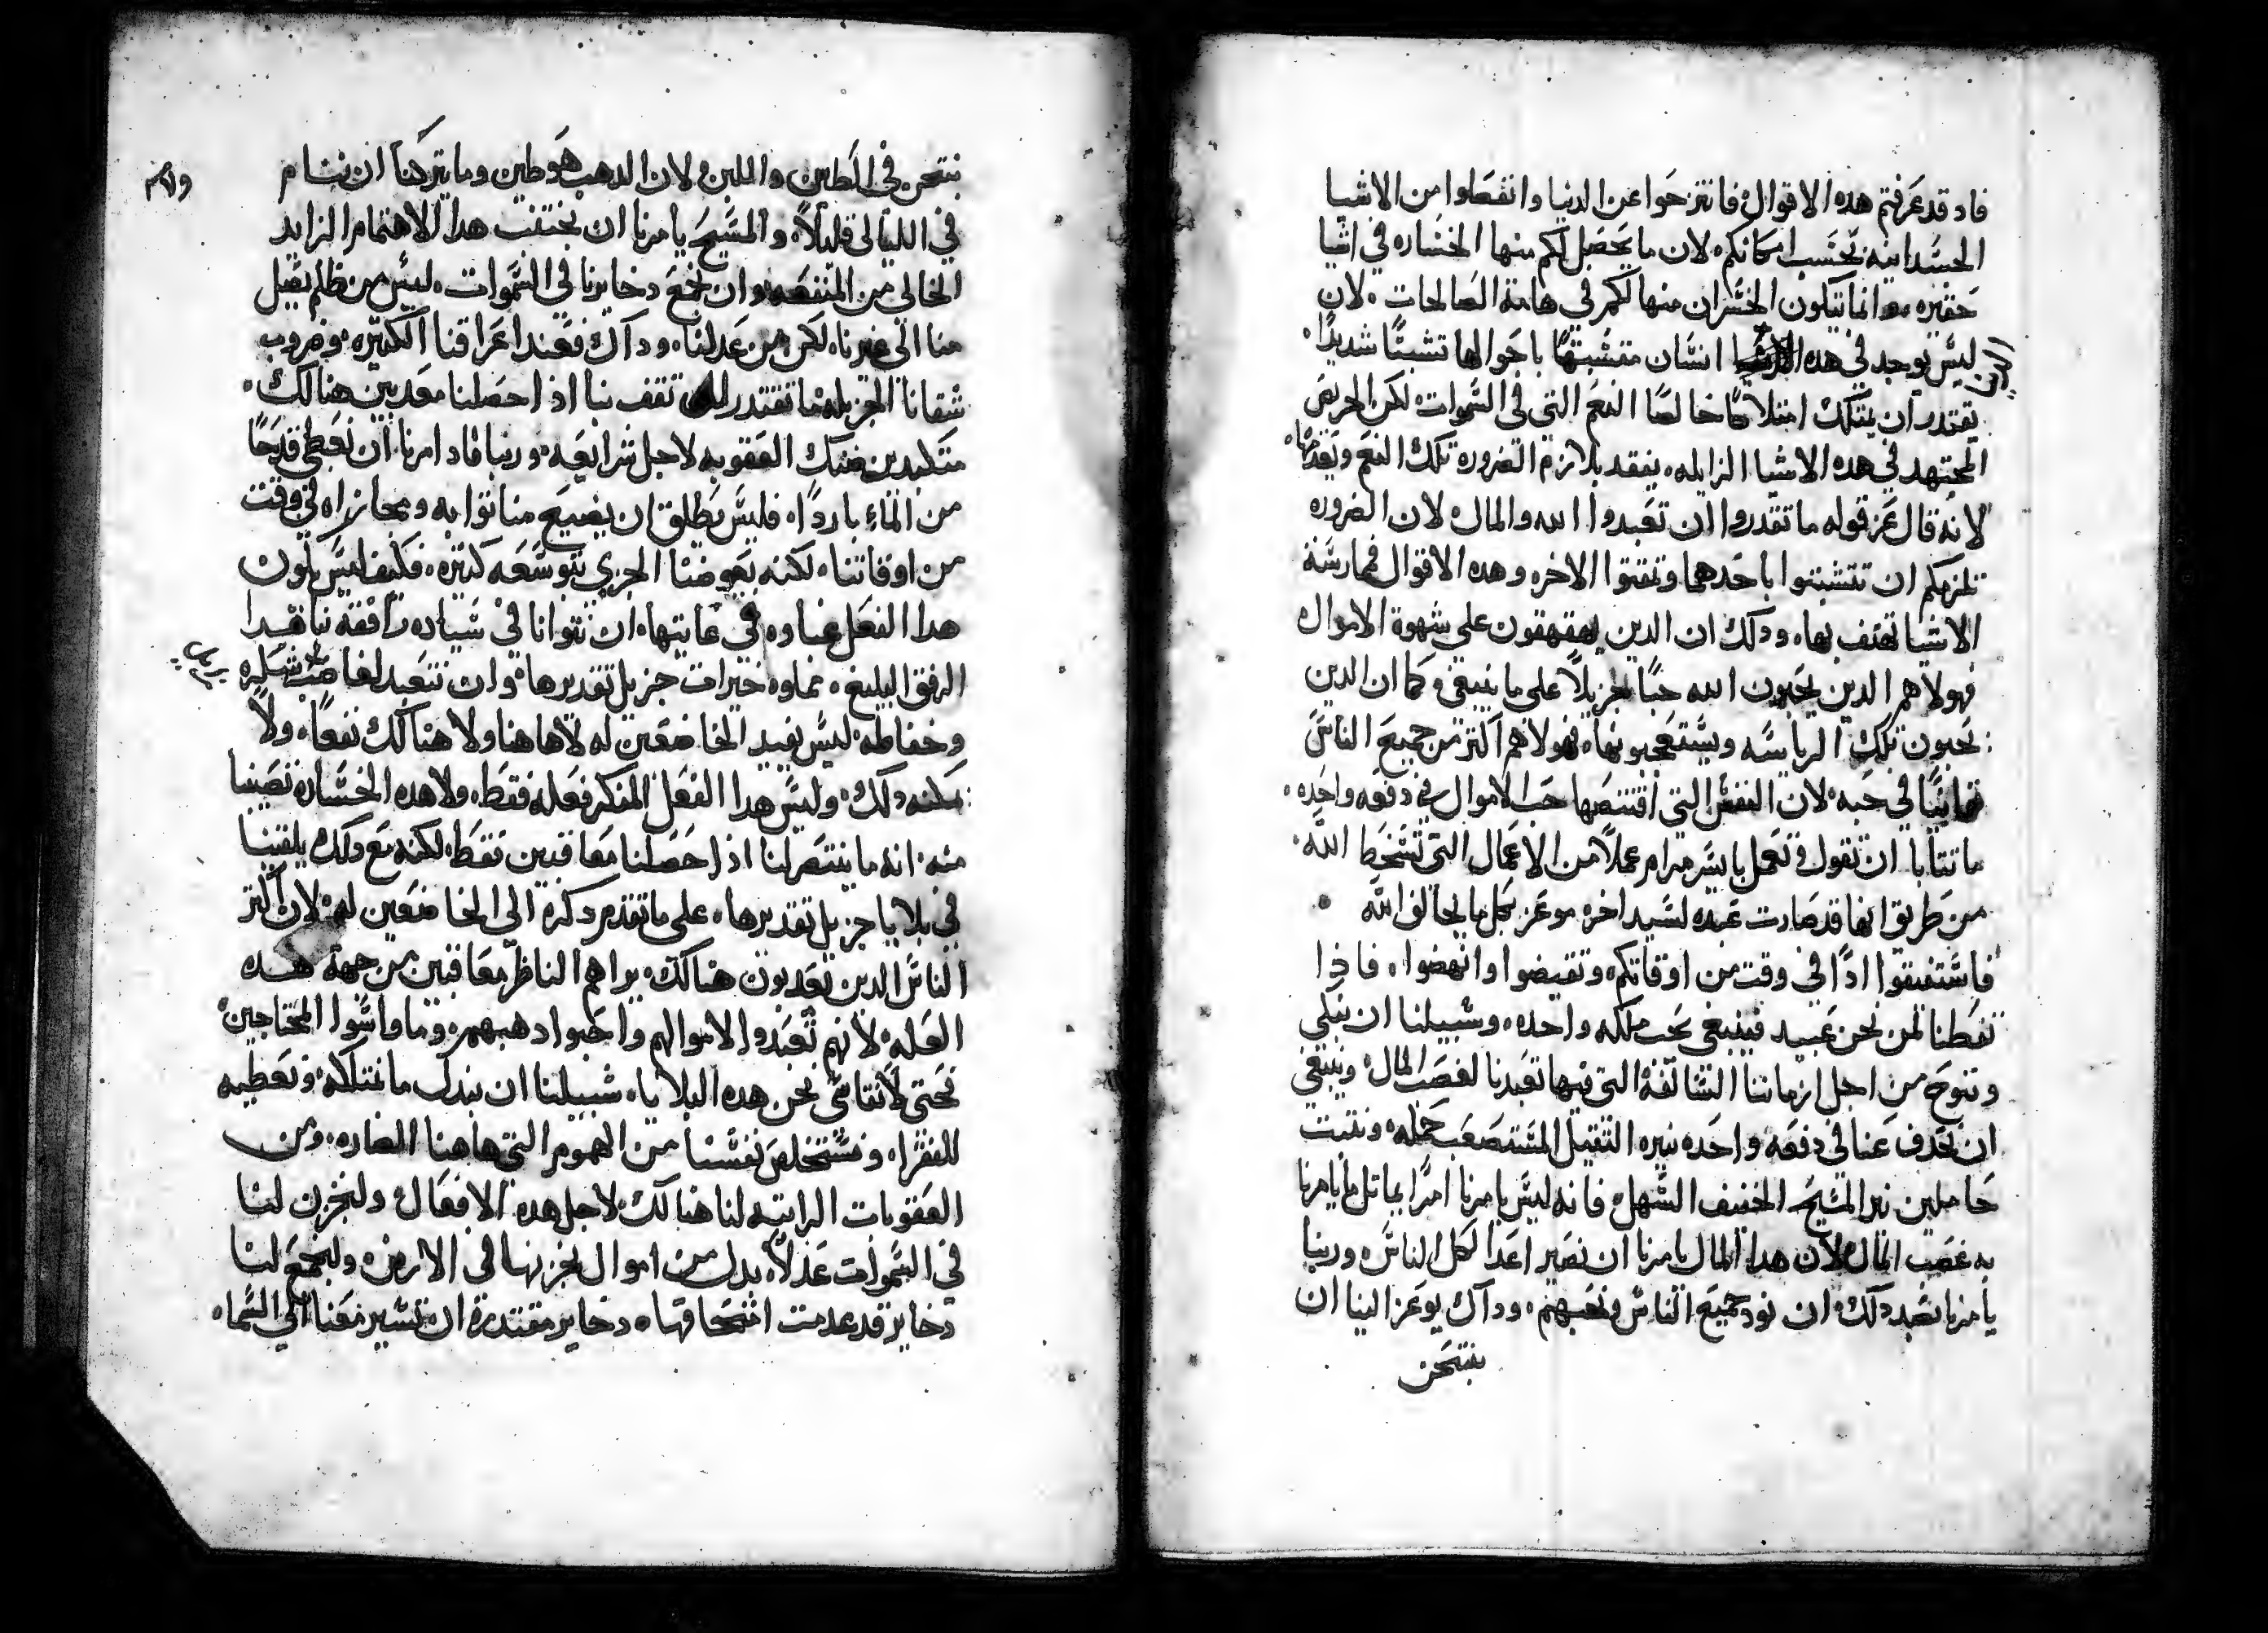 فاد قد عرفتم هده الاقوال فانتزحوا عن الدنيا وانفصلوا من الاشيا
الجسدانيه بحسب امكانكم لان ما يحصل لكم منها الخساره في اشيا
حقيره وانما تكون الخسران منها لكم في هامة الصالحات لان
ليس يوجد في هده انسان متشبثا باحوالها تشبثا شديدا
الارض
يقتدر ان يمتلك امتلاكا خالصا النعم التى فى السموات لكن الحريص
المجتهد في هده الاشيا الزايله يفقد بلازم الضروره تلك النعم ويعدمها
لانه قال عز قوله ما تقدروا ان تعبدوا الله والمال لان الضروره
تلزمكم ان تتشبثوا باحدهما وتمقتوا الاخر وهده الاقوال فممارسة
الاشيا تهتف بها ودلك ان الدين يقهقهون على شهوة الاموال
فهولاهم الدين يحبون الله حبا جزيلا على ما ينبغي كما ان الدين
يحبون تلك الرياسه ويستعجبونها فهولاهم اكثر من جميع الناس
تهاونا في حبه لان النفس التي اقتنصها حب الاموال في دفعه واحده
ما تتابا ان تقول وتعمل بايسر مرام عملا من الاعمال التى تسخط الله
من طريق انها قد صارت عبده لسيد اخر موعز بكل ما يخالف الله
فاستفيقوا ادا في وقت من اوقاتكم وتقيضوا وانهضوا فاذا
تفطنا لمن نحن عبيد فينبغي نحب ملكه واحده وسبيلنا ان نبكى
وننوح من اجل ازماننا السالفه التى فيها تعبدنا لغصب المال وينبغي
ان نقدف عنا في دفعه واحده نيره الثقيل المستصعب حمله ونثبت
حاملين نير المسيح الخفيف السهل فانه ليس يامرنا امرا يماثل ما يامرنا
به غصب المال لان هدا المال يامرنا ان نصير اعدا لكل الناس وربنا
يامرنا بضد دلك ان نود جميع الناس ونحبهم وداك يوعز الينا ان
ننتحن
ننتحن في الطين واللبن لان الدهب هو طين وما يتركنا ان ننام
في الليالي قليلا والمسيح يامرنا ان نجتنب هدا الاهتمام الزايد
الخالى من المنفعه وان نجمع دخايرنا في السموات ليس من ظلم يصل
منا الى غيرنا لكن من عدلنا وداك فعند اعراقنا الكثيره وضروب
شقانا الجزيله ما تقتدر تقف بنا اذ احصلنا معدبين هنالك
متكبدين ضنك العقوبه لاجل شرايعه وربنا فاد امرنا ان نعطى قدحا
من الماء باردا فليس يطلق ان يضيع منا ثوابه ومجازاه في وقت
من اوقاتنا لكنه يعوضنا الجزي بتوسعه كثيره فكيف ليس يكون
هدا الفعل غباوه في غايتها ان نتوانا في سياده رافقة بنا هدا
الرفق البليغ مملوه خيرات جزيل تقديرها وان نتعبد لغاصب شكره
وحفاطه ليس يفيد الخاضعين له لا هاهنا ولا هنالك نفعا ولا
يمكنه دلك وليس هدا الفعل المنكر فعله فقط ولا هده الخساره تصيبنا
منه انه ما ينتصر لنا اذا حصلنا معاقبين فقط لكنه مع دلك يلقينا
في بلايا جزيل تقديرها على ما تقدم دكره الى الخاضعين له لان اكثر
الناس الدين يعدبون هنالك يراهم الناظر معاقبين من جهة هده
العله لانهم تعبدوا لاموالهم واحبوا دهبهم وما واسوا المحتاجين
فحتى لا نتاسى نحن هده البلايا سبيلنا ان نبدل ما نمتلكه ونعطيه
للفقرا ونستخلص نفسنا من الهموم التى هاهنا الضاره ومن
العقوبات الراتبه لنا هنالك لاجل هده الافعال ولنخزن لنا
في السموات عدلا بدل من اموال نخزنها في الارض ولنجمع لنا
دخاير قد عدمت امتحاقها دخاير مقتدرة ان تسير معنا الى السما